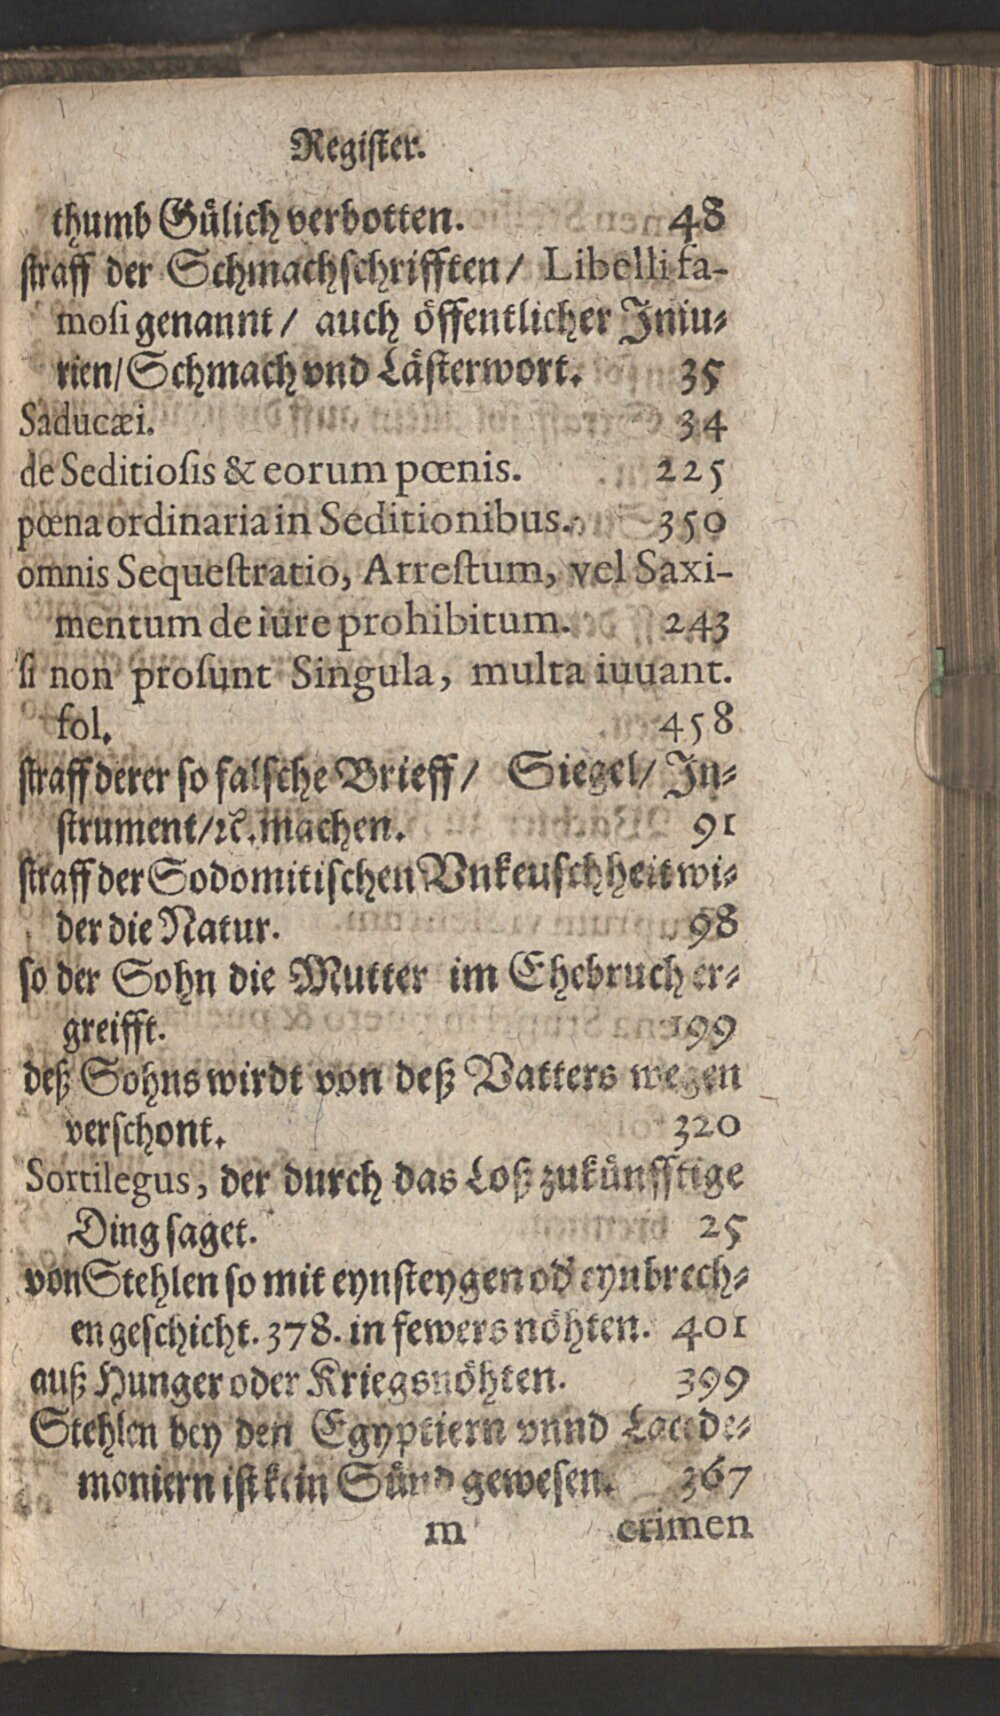 Register.
thumb Gülich verbotten. 48
straff der Schmachschrifften/ Libelli fa-
mosi genannt/ auch öffentlicher Iniu-
rien/Schmach vnd Lästerwort. 35
Saducæi. 34
de Seditiosis & eorum pœnis. 225
pœna ordinaria in Seditionibus. 350
omnis Sequestratio, Arrestum, vel Saxi-
mentum de iure prohibitum. 243
si non prosunt Singula, multa iuuant.
fol. 458
straff derer so falsche Brieff/ Siegel/ In-
strument/ꝛc. machen. 91
straff der Sodomitischen Vnkeuschheit wi-
der die Natur. 98
so der Sohn die Mutter im Ehebruch er-
greifft. 199
deß Sohns wirdt von deß Vatters wegen
verschont. 320
Sortilegus, der durch das Loß zukünfftige
Ding saget. 25
von Stehlen so mit eynsteygen od' eynbrech-
en geschicht. 378. in fewers nöhten. 401
auß Hunger oder Kriegsnöhten. 399
Stehlen bey den Egyptiern vnnd Lacede-
moniern ist kein Sünd gewesen. 367
m crimen